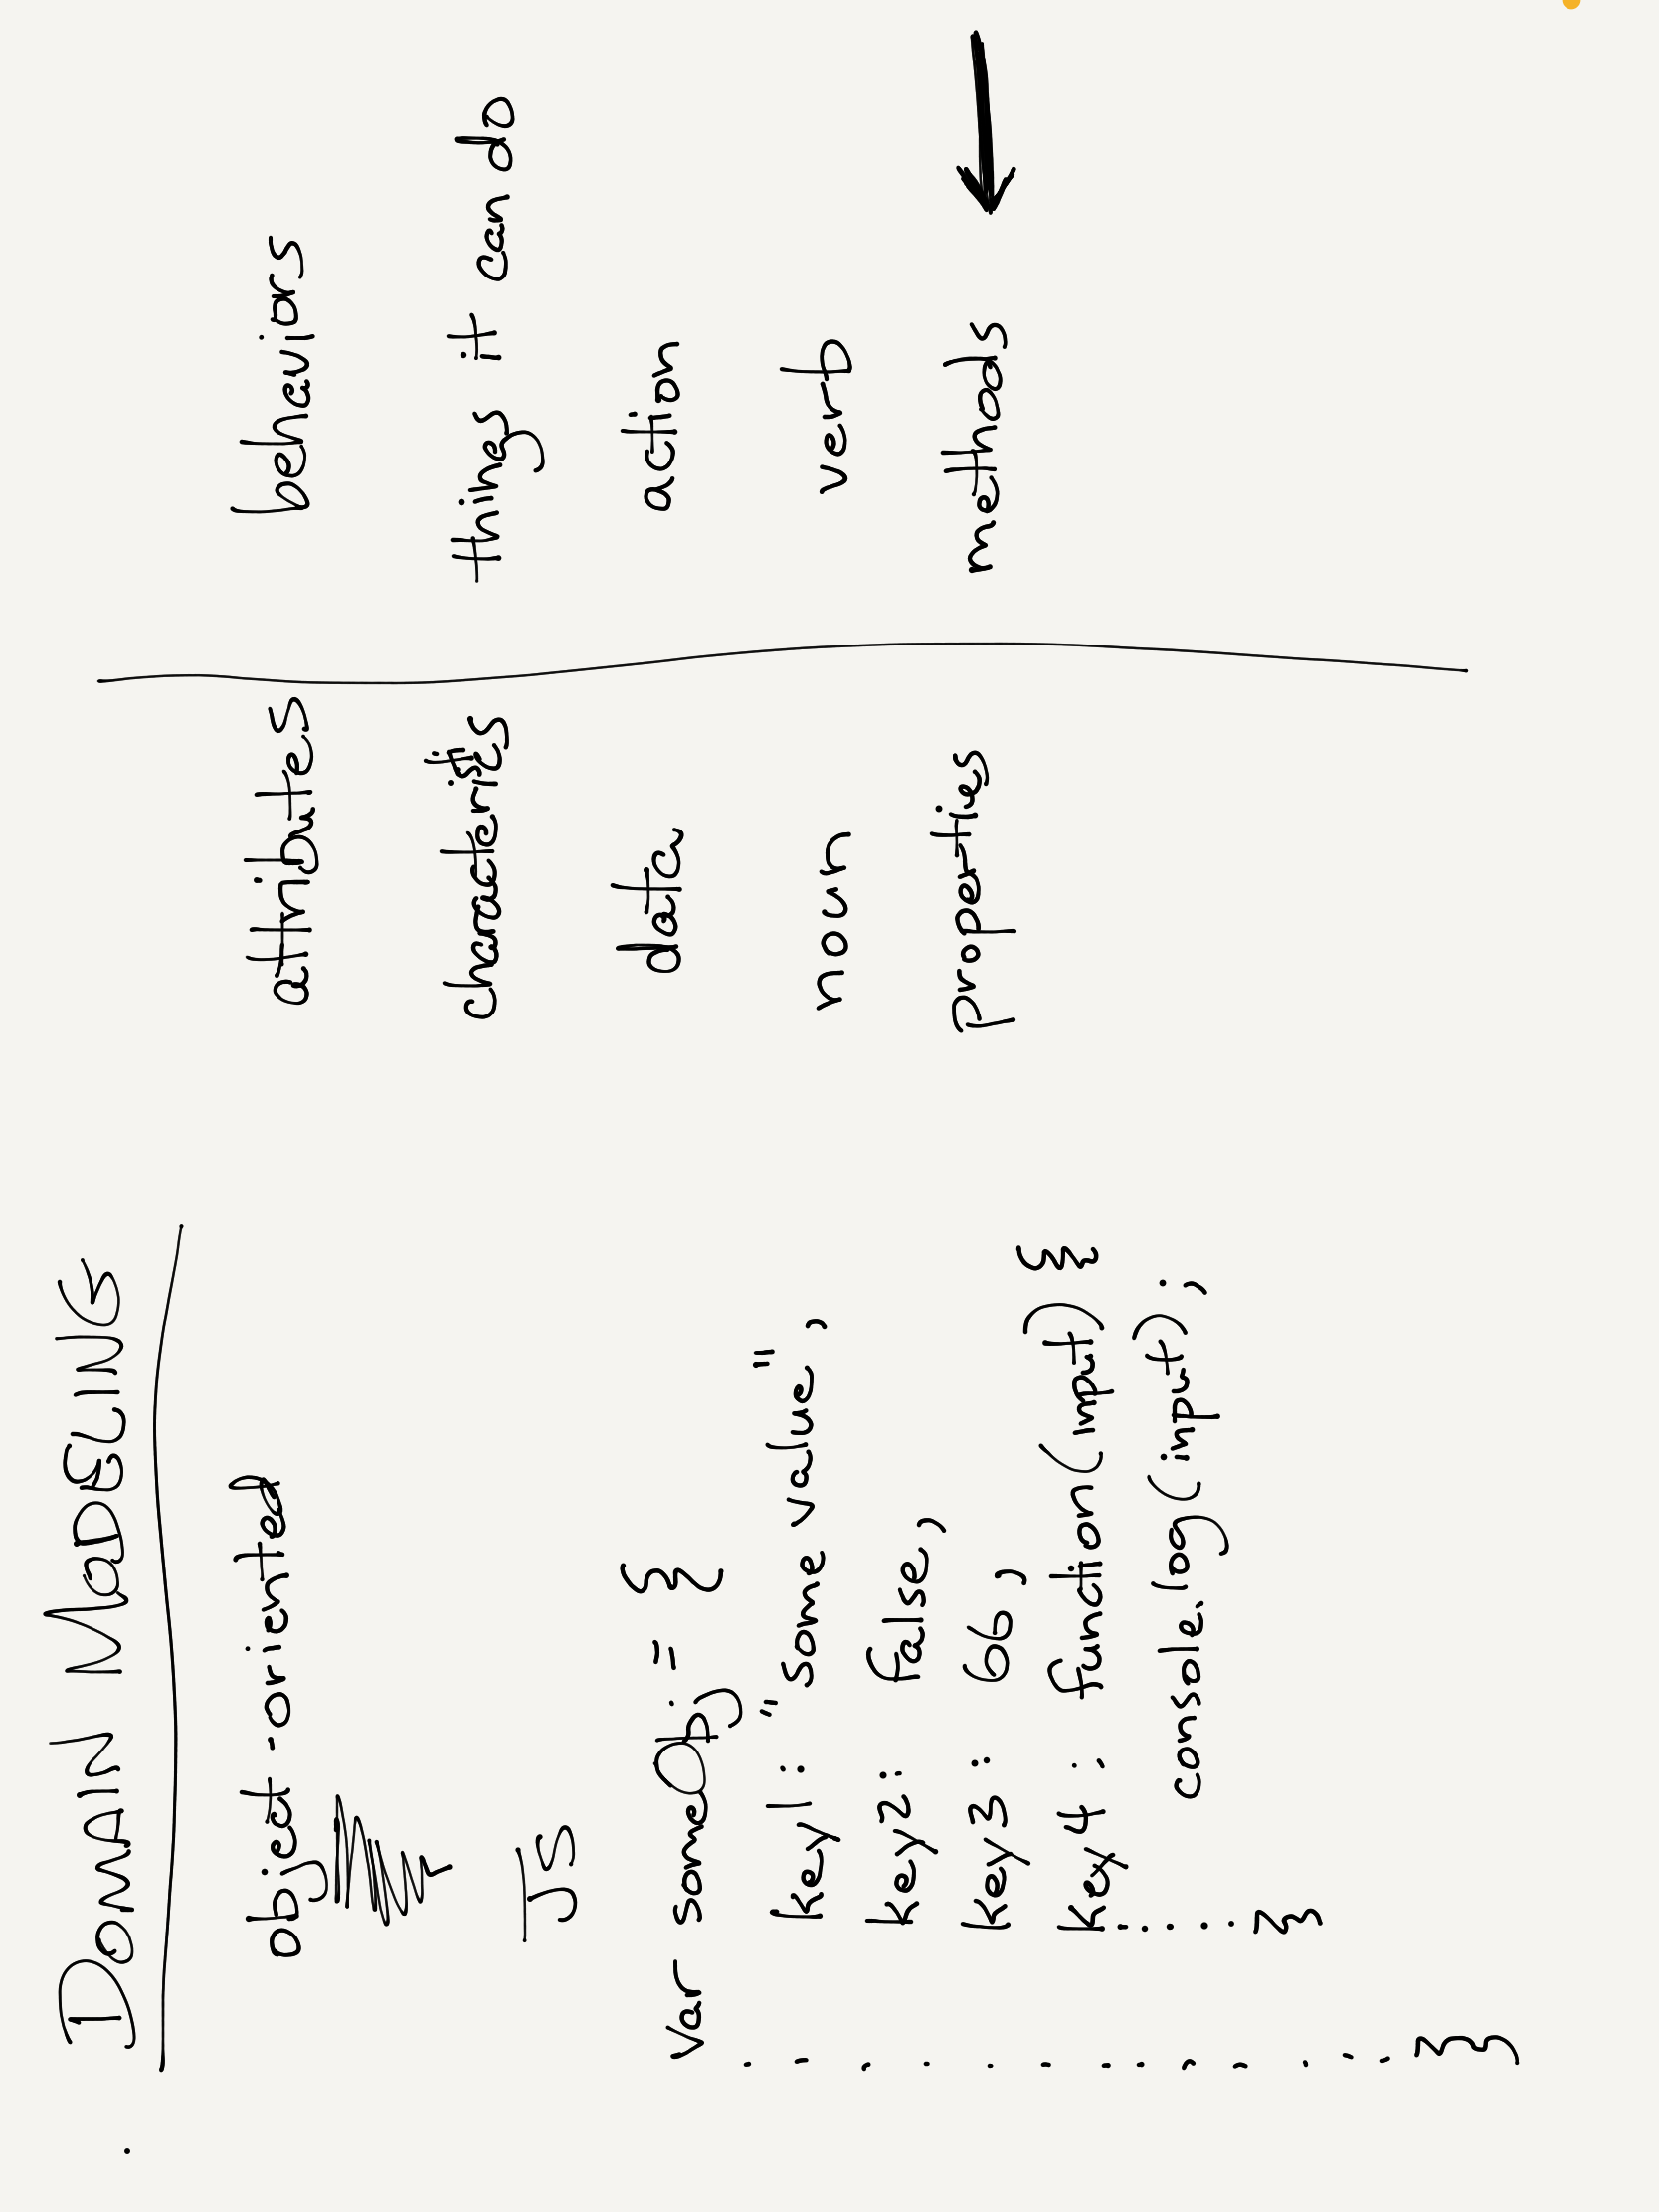 DOMAIN MODELING
object-oriented
JS
var someObj = {
key1: "some value",
key2: false,
key3: 66,
key4: function(input) {
console.log(input);
}
}
attributes
characteristics
data
noun
properties
behaviors
things it can do
action
verb
methods